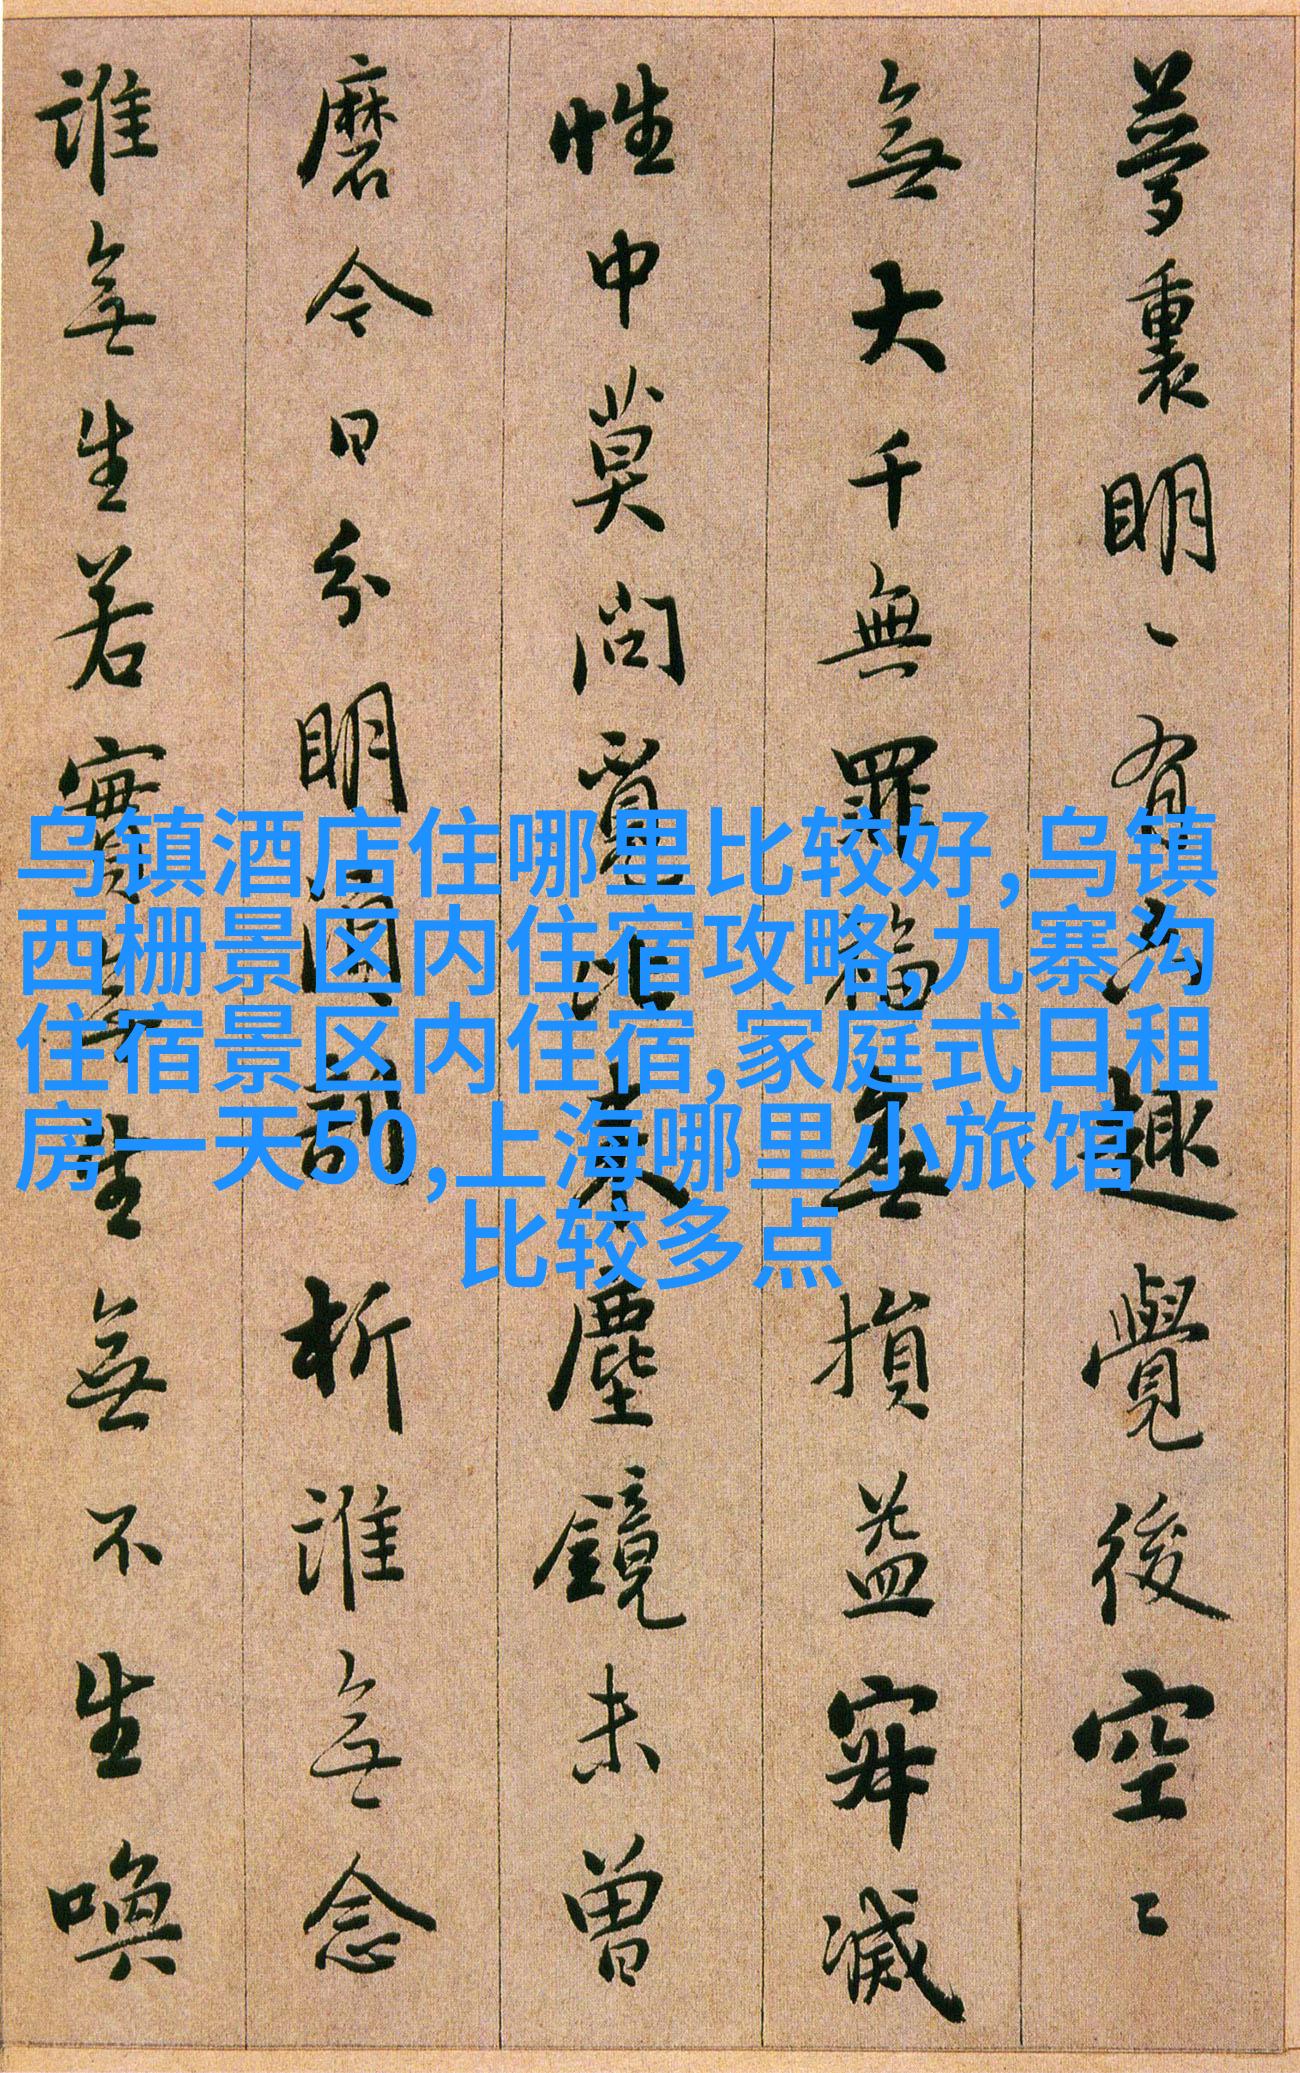 夢裏明明有六趣覺後空空
無大千無罪福無損益寂滅
性中莫問覓比來塵鏡未曾
磨令日分明須剖析誰無念
誰無生若實無生無不生喚
乌镇酒店住哪里比较好,乌镇
西栅景区内住宿攻略,九寨沟
住宿景区内住宿,家庭式日租
房一天50,上海哪里小旅馆
比较多点